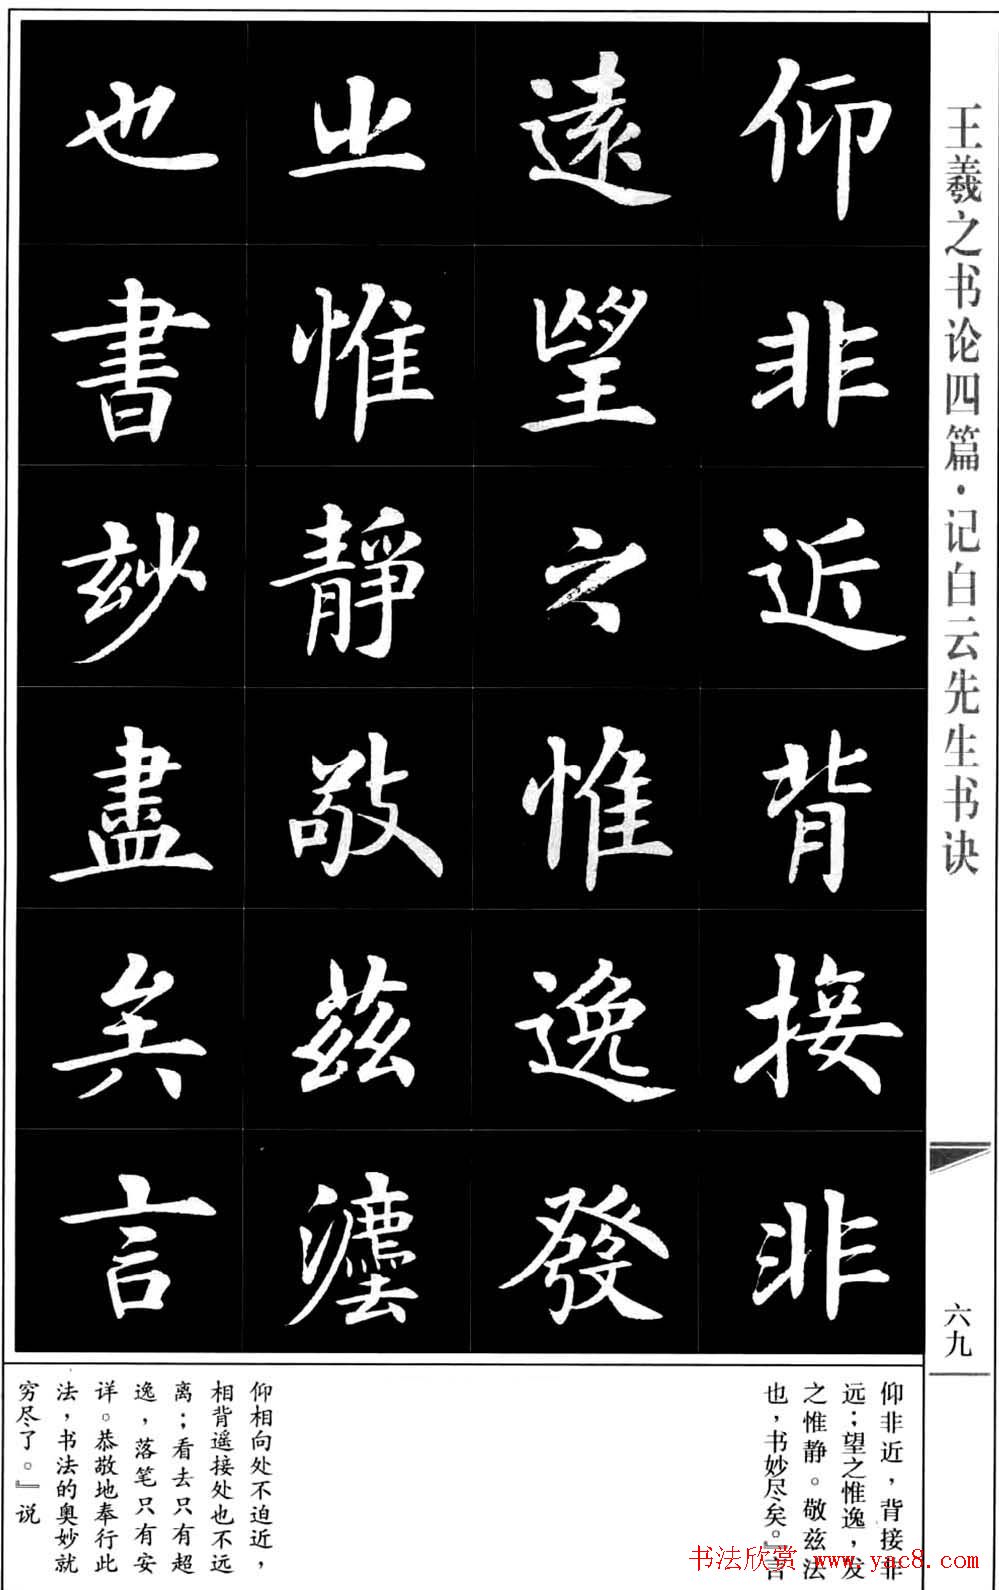 王羲之书论四篇·记白云先生书诀
六九
仰非近背接非
遠望之惟逸發
之惟靜敬茲灋
也書玅盡矣言
仰非近，背接非
远；望之惟逸，发
之惟静。敬兹法
也，书妙尽矣。』言
仰相向处不迫近，
相背遥接处也不远
离；看去只有超
逸，落笔只有安
详。恭敬地奉行此
法，书法的奥妙就
穷尽了。』说
书法欣赏 www.yac8.com